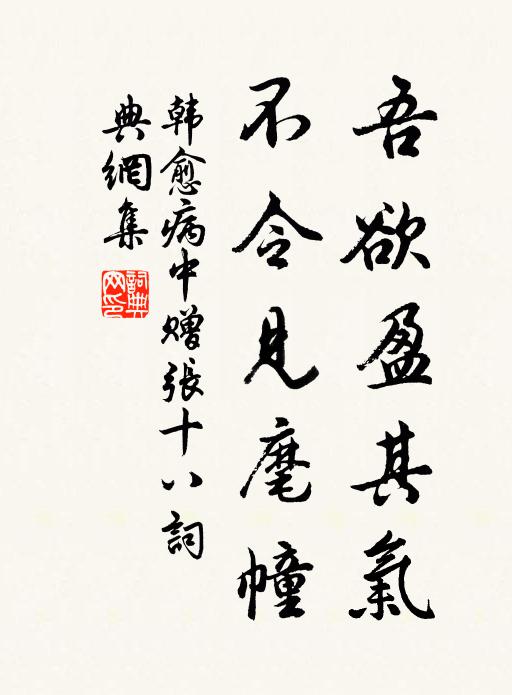 吾欲盈其氣
不令見麾幢
韩愈病中赠張十八詞
典網集
詞典
网印